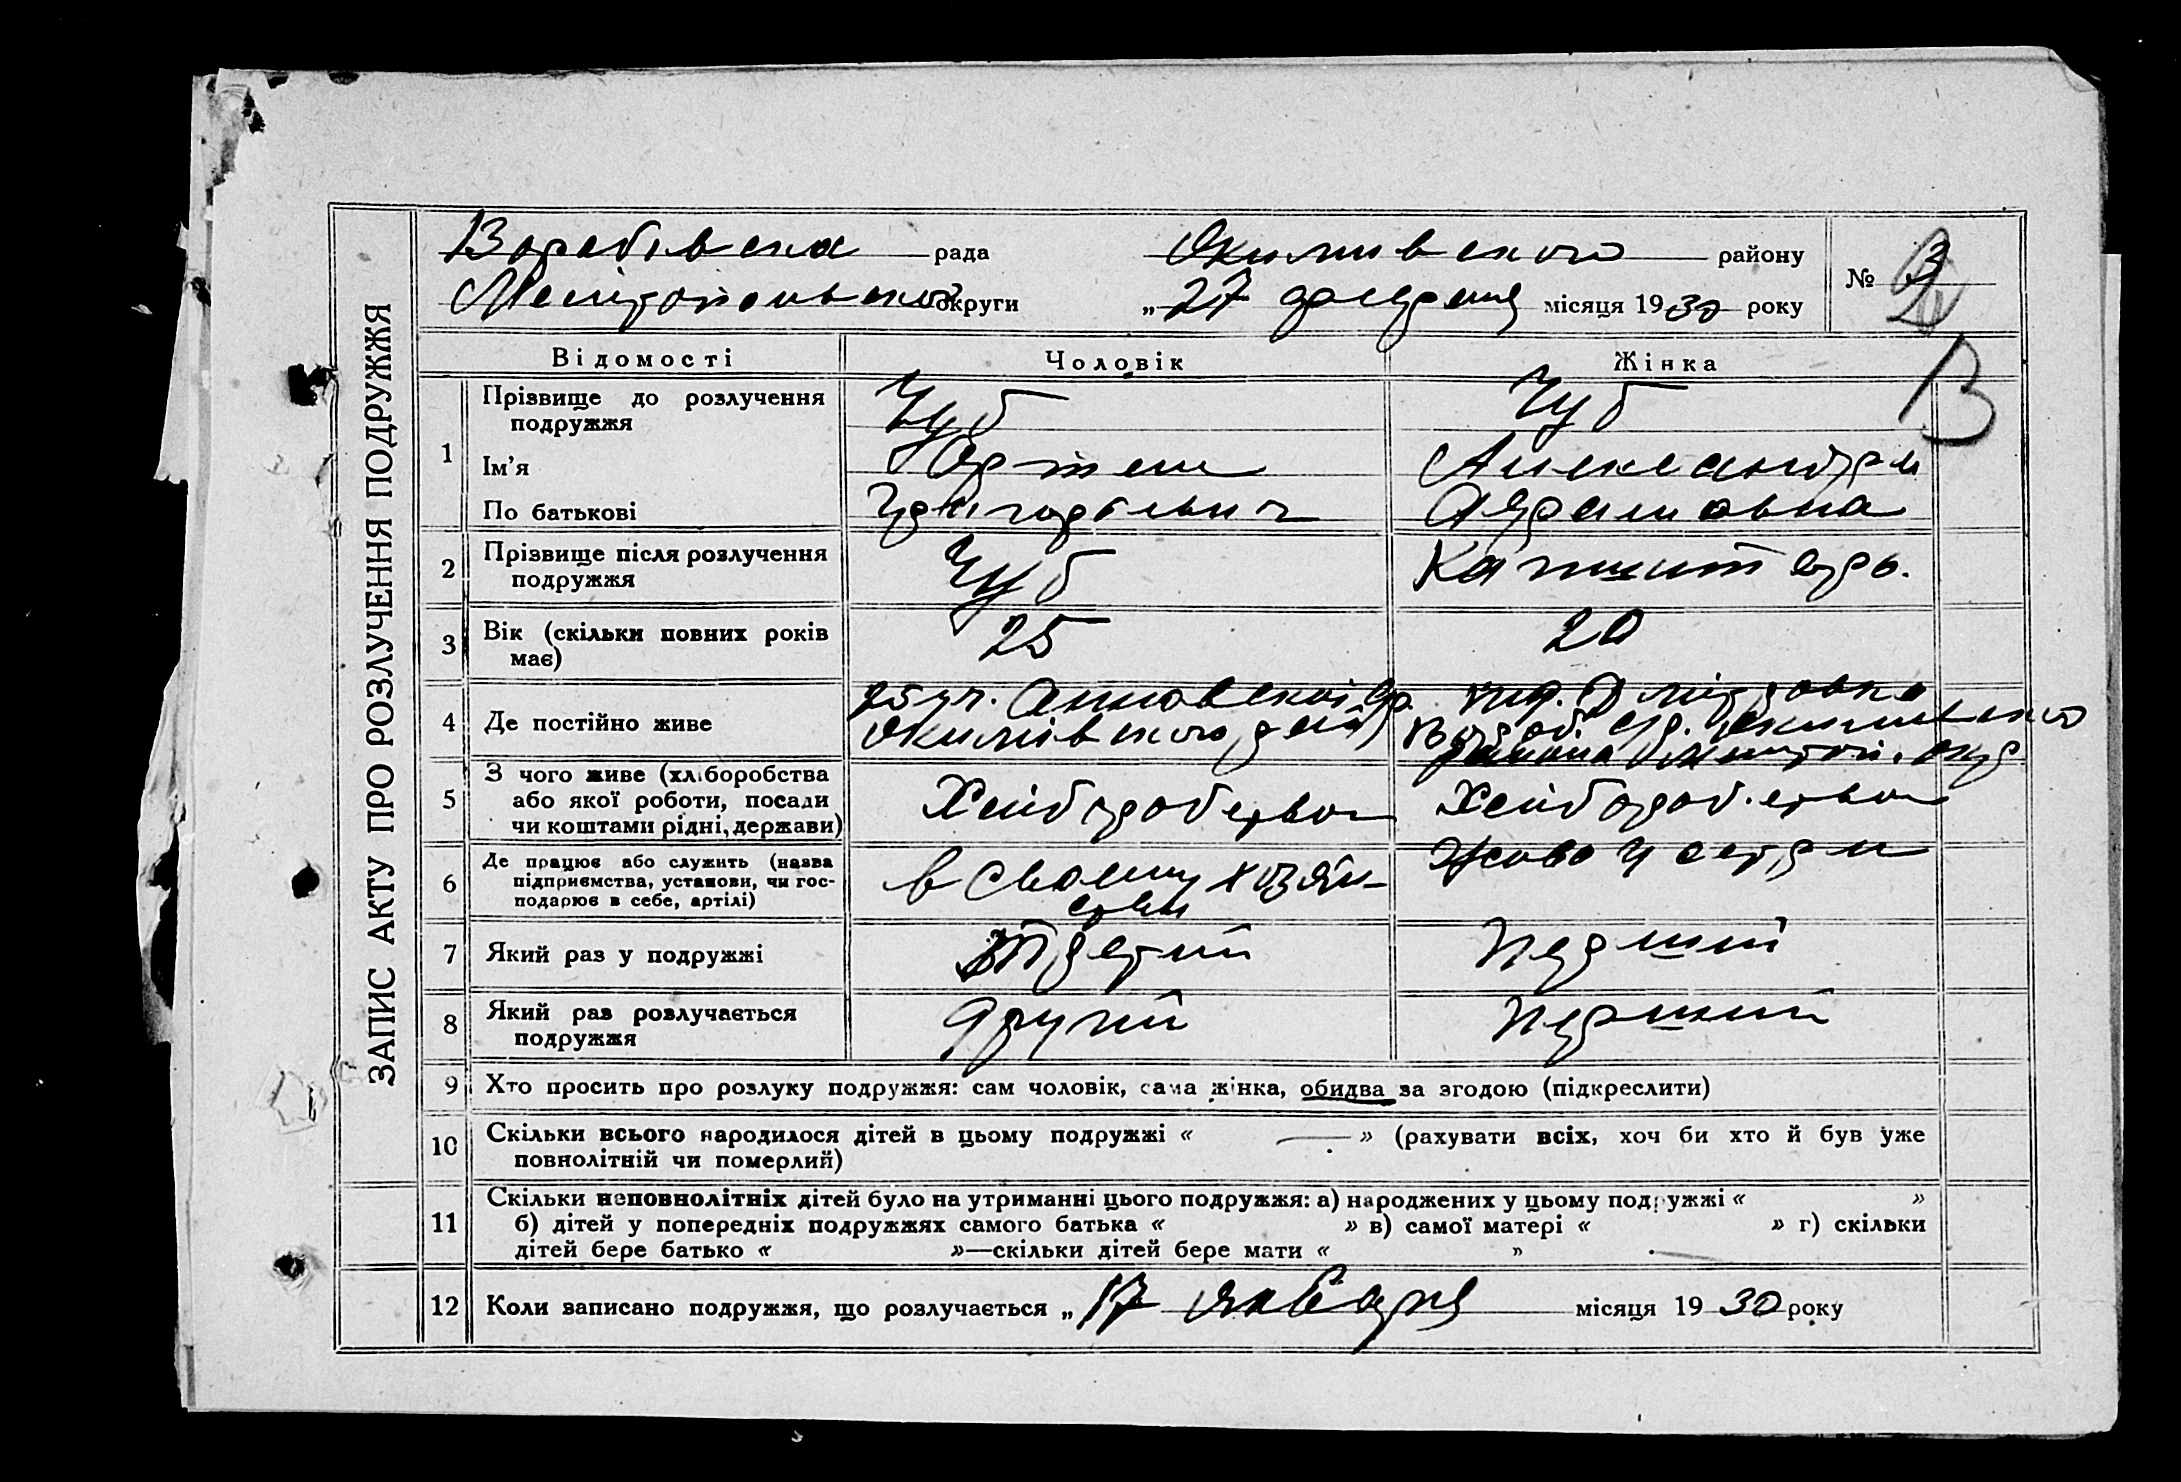 ЗАПИС АКТУ ПРО РОЗЛУЧЕННЯ ПОДРУЖЖЯ
Воробівска рада Якимивского району
Мелітопольской округи „27 февраля місяця 1930 року
№ 3
В
Відомості Чоловік Жінка
1 Прізвище до розлучення подружжя Чуб Чуб
Ім’я Артем Александра
По батькові Григорьевич Абрамовна
2 Прізвище після розлучення подружжя Чуб
3 Вік (скільки повних років має) 25 20
4 Де постійно живе
Анновской
Якимівского
5 З чого живе (хліборобства або якої роботи, посади чи коштами рідні, держави) Хлібороб
6 Де працює або служить (назва підприємства, установи, чи господарює в себе, артілі) в своему хозяй-
стви
7 Який раз у подружжі третий перший
8 Який раз розлучається подружжя другий перший
9 Хто просить про розлуку подружжя: сам чоловік, сама жінка, обидва за згодою (підкреслити)
10 Скільки всього народилося дітей в цьому подружжі « — » (рахувати всіх, хоч би хто й був уже
повнолітній чи померлий)
11 Скільки неповнолітніх дітей було на утриманні цього подружжя: а) народжених у цьому подружжі « »
б) дітей у попередніх подружжях самого батька « » в) самої матері « » г) скільки
дітей бере батько « »—скільки дітей бере мати « »
12 Коли записано подружжя, що розлучається „17 января місяця 1930 року